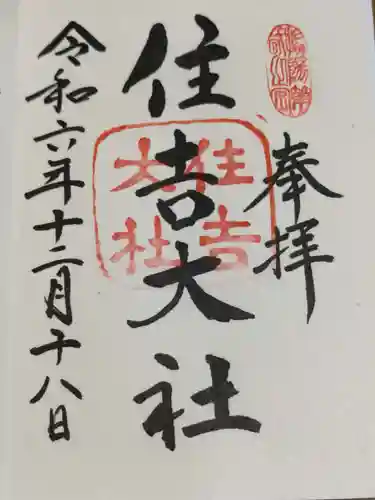 奉拝
住吉大社
住吉大社
令和六年十二月十八日